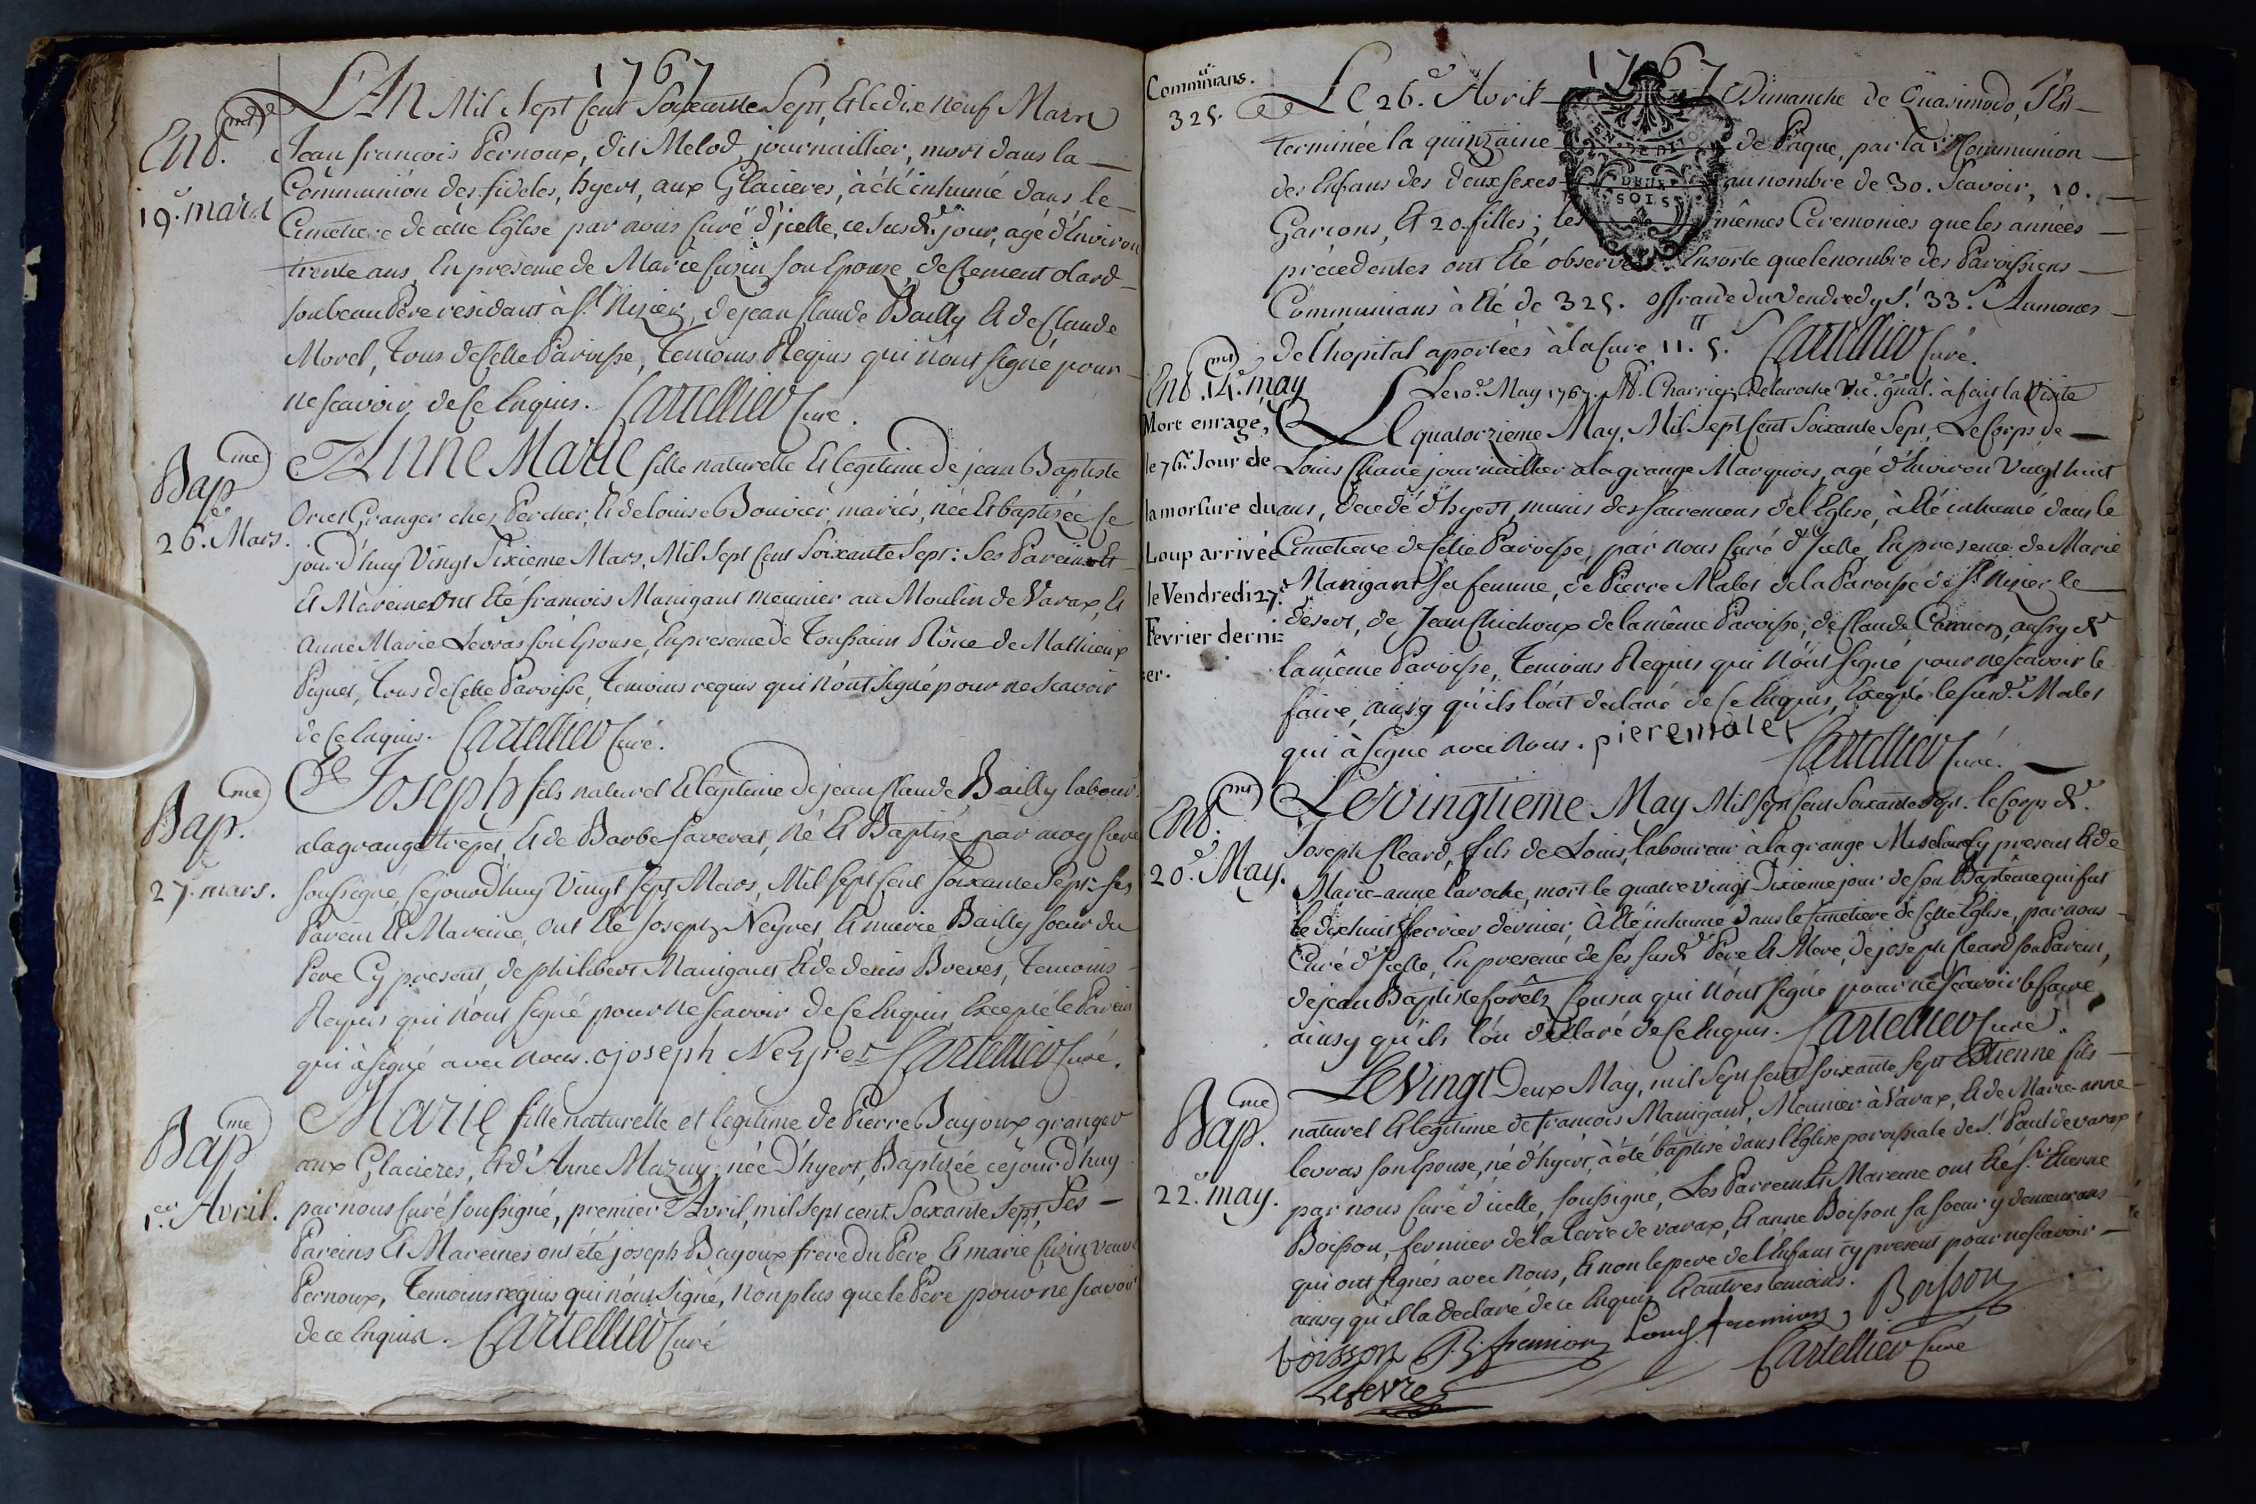 1767
L'An Mil Sept Cent Soixante Sept, Et le dix neuf Mars
Ent.
19.e mars
Jean francois Pernoux, dit Melod, journaillier, mort dans la
Communion des fideles, hyert, aux Glacieres, à été inhumé dans le
Cimetiere de cette Eglise par nous Curé d'jcelle, ce susd. jour, agé d'Environ
trente ans, En presence de Marie Cuzin son Epouse, de Clement olard
son beau Pere residant à St. Nizier, de jean Claude Bailly Et de Claude
Morel, Tous de Cette Paroisse, Temoins Requis qui n'ont signé pour
ne scavoir, de Ce Enquis. Cartellier Curé.
Bap.me
26.e Mars.
Anne Marie fille naturelle Et legitime de jean Baptiste
Granger chez Percher, Et de Louise Bouvier, mariés, née Et baptisée Ce
jourd'huy Vingt Sixieme Mars, Mil Sept Cent Soixante Sept: Ses Pareins Et
Et Mareines Ont Eté francois Manigant meunier au Moulin de Varax, Et
Anne Marie Levras son Epouse, En presence de Toussaint Rône de Mathieu
Piguet, Tous de Cette Paroisse, Temoins requis qui n'ont Signé pour ne Scavoir
de Ce Enquis. Cartellier Curé.
Bap.me
27.e mars.
Joseph fils naturel Et legitime de jean Claude Bailly labour.
a la grange trepet, Et de Barbe Saverat, né Et Baptisé par moy Curé
soussigné, Ce jourd'huy Vingt Sept Mars, Mil Sept Cent Soixante Sept: Ses
Parein Et Mareine, Ont Eté Joseph Neyret, Et marie Bailly soeur du
Pere Cy present, de philibert Manigant Et de denis Brevet, Temoins
Requis qui n'ont signé pour ne scavoir de Ce Enquis, Excepté le Parein
qui à signé avec nous. joseph Neyret Cartellier Curé.
Bap.me
1.er Avril.
Marie fille naturelle et legitime de Pierre Bajoux granger
aux Glacieres, Et d'Anne Mazuy, née D'hyert, Baptisée ce jourd'huy
par nous Curé soussigné, premier Avril, mil sept cent Soixante Sept, Ses
Pareins Et Mareines ont été joseph Bajoux frere du Pere Et marie Cuzin veuve
Pernoux, Temoins requis qui n'ont Signé, Non plus que le Pere pour ne scavoir
de ce Enquis. Cartellier Curé
1767
Communians.
325.
Le 26.e Avril Dimanche de Quasimodo, s'Est
terminée la quinzaine de Pâque, par la 1.re Communion
des Enfans des deux sexes au nombre de 30. Scavoir, 10.
Garcons, Et 20 filles; les mêmes Ceremonies que les années
GEN. DE DIJON
DEUX
SOLS
précedentes ont Eté observées Ensorte que le nombre des Paroissiens
Communians à Eté de 325. offrande du Vendredy St. 33.s Aumones
de l'hopital aportées à la Cure 11.tt 5.s Cartellier Curé.
Le 10.e May 1767. Mr. Charrier Delaroche Vic. gñal. à fait la Visite
Ent. 14.e may
Mort enragé,
le 76.e Jour de
la morsure du
Loup arrivée
le Vendredi 27.e
Fevrier derni=
er.
Le quatorzieme May, Mil Sept Cent Soixante Sept, Le Corps de
Louis Chanel journaillier a la grange Marquois, agé d'Environ Vingt huit
ans, decedé d'hyert, munis des sacremens de l'Eglise, à Eté inhumé dans le
Cimetiere de Cette Paroisse, par nous Curé d'Jcelle, En presence de Marie
Manigant sa femme, de Pierre Malet de la Paroisse de St. Nizier le
desert, de Jean Chichoux de la même Paroisse, de Claude aussy de
la même Paroisse, Temoins Requis qui N'ont Signé pour ne scavoir le
faire, ainsy qu'ils l'ont declaré de Ce Enquis, Excepté le susd. Malet
qui à signé avec nous. piere malet Cartellier Curé.
Ent.
20.e May.
Le Vingtieme May Mil sept Cent Soixante Sept. le Corps de
Joseph Cleard, fils de Louis, laboureur à la grange cy present Et de
Marie-anne Laroche, mort le quatre vingt Dixieme jour de son Baptême qui fut
le dixhuit fevrier dernier, À Eté inhumé dans le Cimetiere de Cette Eglise, par nous
Curé d'Jcelle, En presence de ses susd. Pere Et Mere, de joseph Cleard son Parein,
de jean Baptiste forêt Cousin qui n'ont signé pour ne Scavoir le faire,
ainsy qu'ils l'on déclaré de Ce Enquis. Cartellier Curé.
Bap.me
22.e may.
Le Vingt Deux May, mil Sept Cent soixante sept Etienne fils
naturel Et legitime de francois Manigant, Meunier à Varax, Et de Marie-anne
levras son Epouse, né d'hyert, à été baptisé dans l'Eglise paroissiale de St. Paul de varax
par nous Curé d'icelle, soussigné, Les Parrein Et Mareine ont Eté Sr. Etienne
Boisson, fermier de la Terre de varax, Et anne Boisson sa soeur y demeurans
qui ont signés avec nous, Et non le pere de l'Enfant cy present pour ne scavoir
ainsy qu'il l'a declaré de ce Enquis, Et autres temoins. Boisson
boisson fremion fremion
Lefevre Cartellier Curé